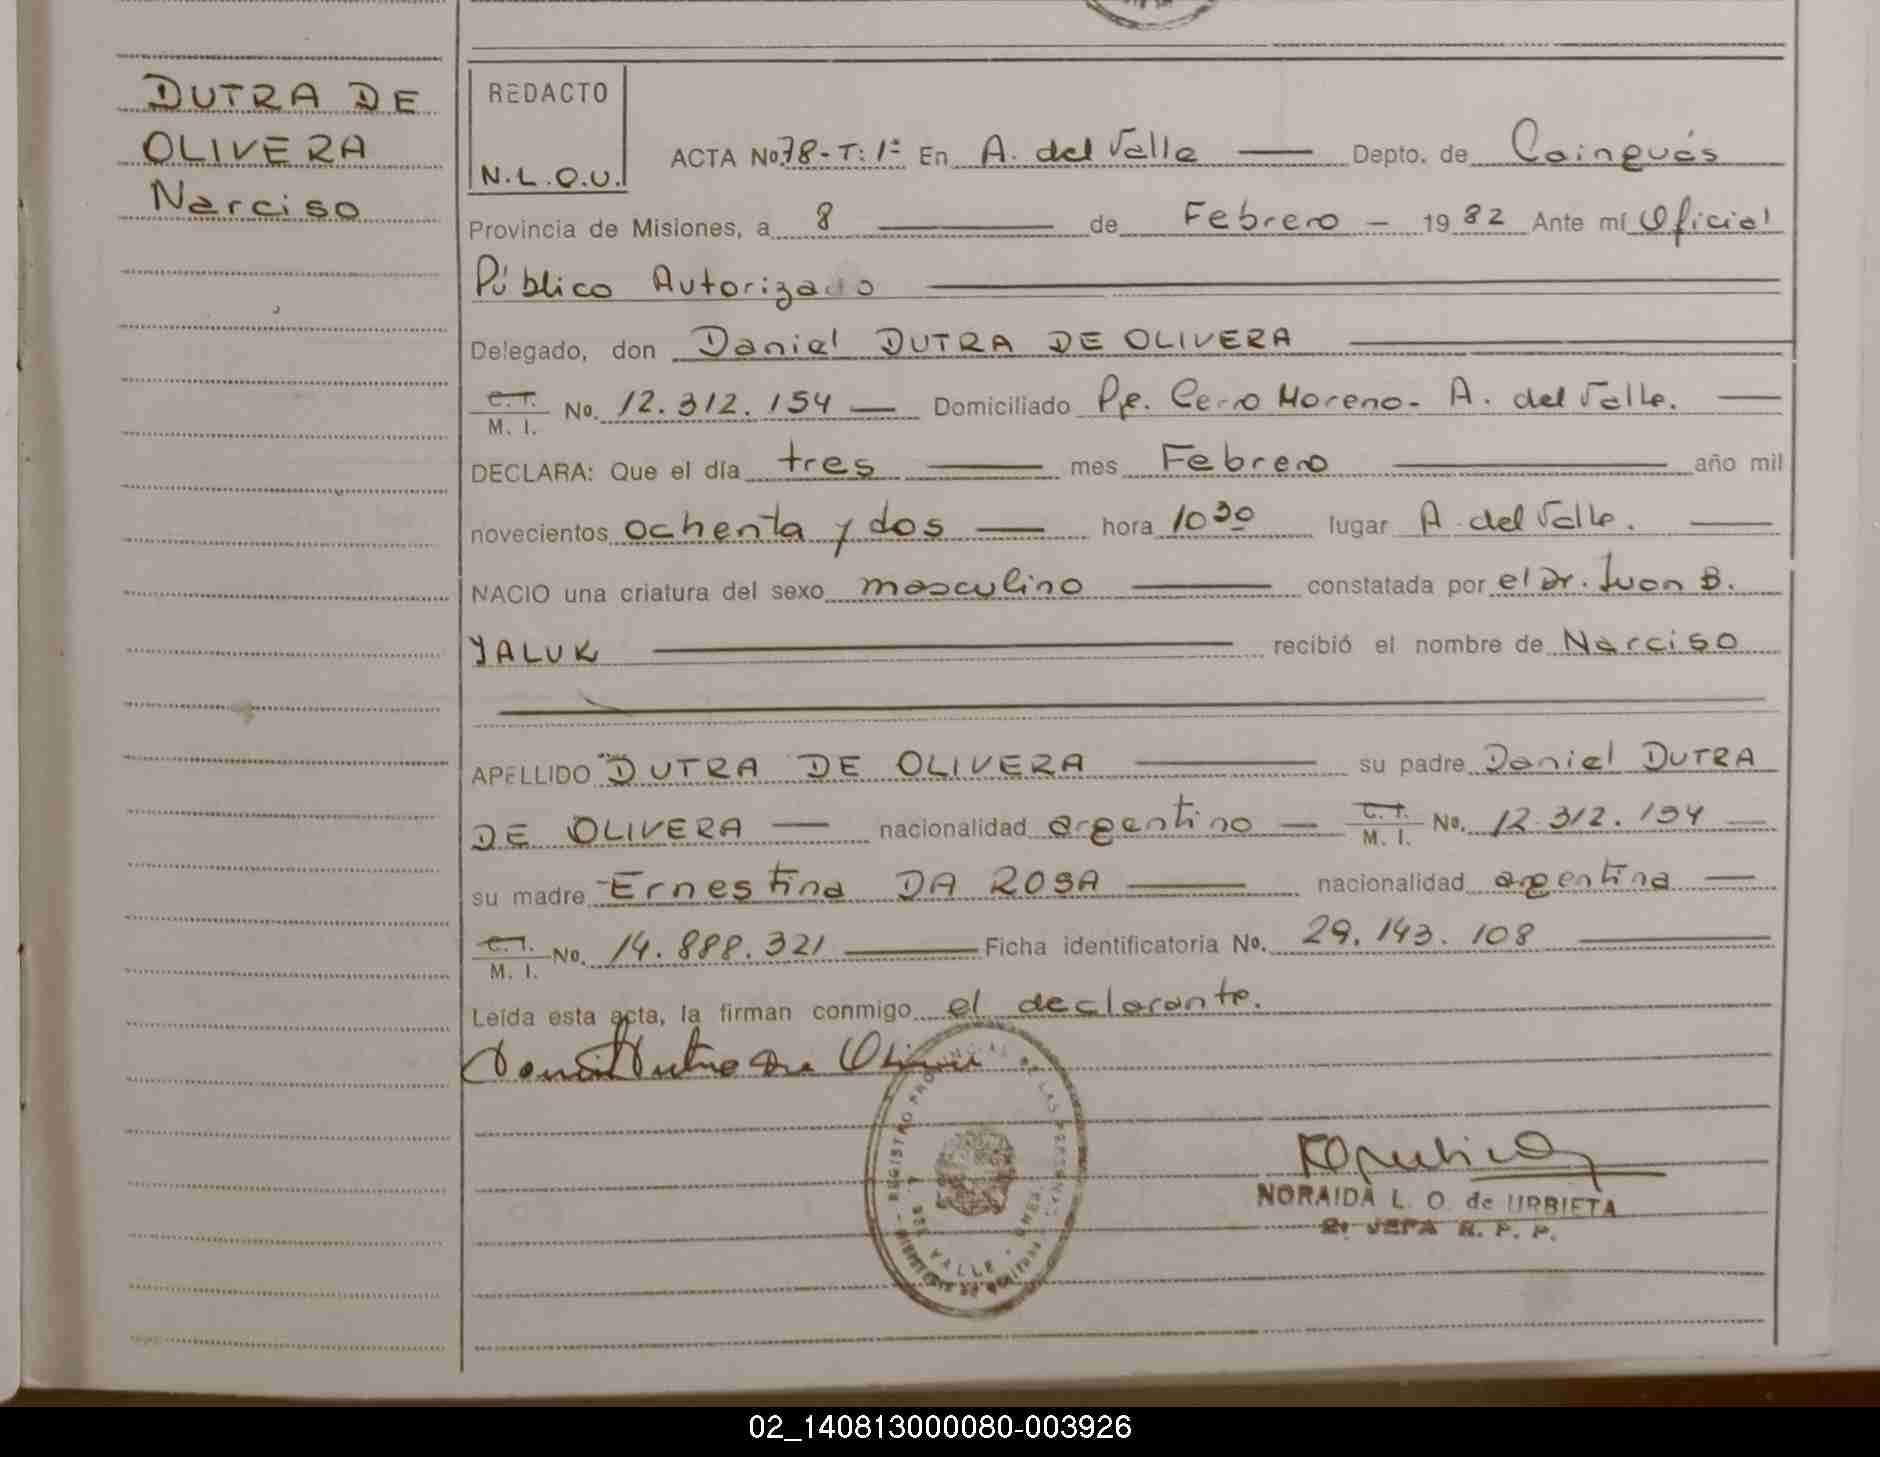 DUTRA DE
OLIVERA
Narciso
REDACTO
N.L.O.U.
ACTA No 78-T: 1º En A. del Valle Depto. de Cainguás
Provincia de Misiones, a 8 de Febrero - 1982 Ante mí Oficial
Público Autorizado
Delegado, don Daniel DUTRA DE OLIVERA
C.I. M. I. No. 12.312.154 Domiciliado Pje. Cerro Moreno - A. del Valle.
DECLARA: Que el día tres mes Febrero año mil
novecientos ochenta y dos hora 10 30 lugar A. del Valle.
NACIO una criatura del sexo masculino constatada por el Dr. Juan B.
YALUK recibió el nombre de Narciso
APELLIDO DUTRA DE OLIVERA su padre Daniel DUTRA
DE OLIVERA nacionalidad argentino C. I. M. I. No. 12.312.154
su madre Ernestina DA ROSA nacionalidad argentina
C. I. M. I. No. 14.888.321 Ficha identificatoria No. 29.143.108
Leída esta acta, la firman conmigo el declarante.
REGISTRO PROVINCIAL DE LAS PERSONAS
DEL VALLE
NORAIDA L. O. de URBIETA
JEFA R. P. P.
02_140813000080-003926